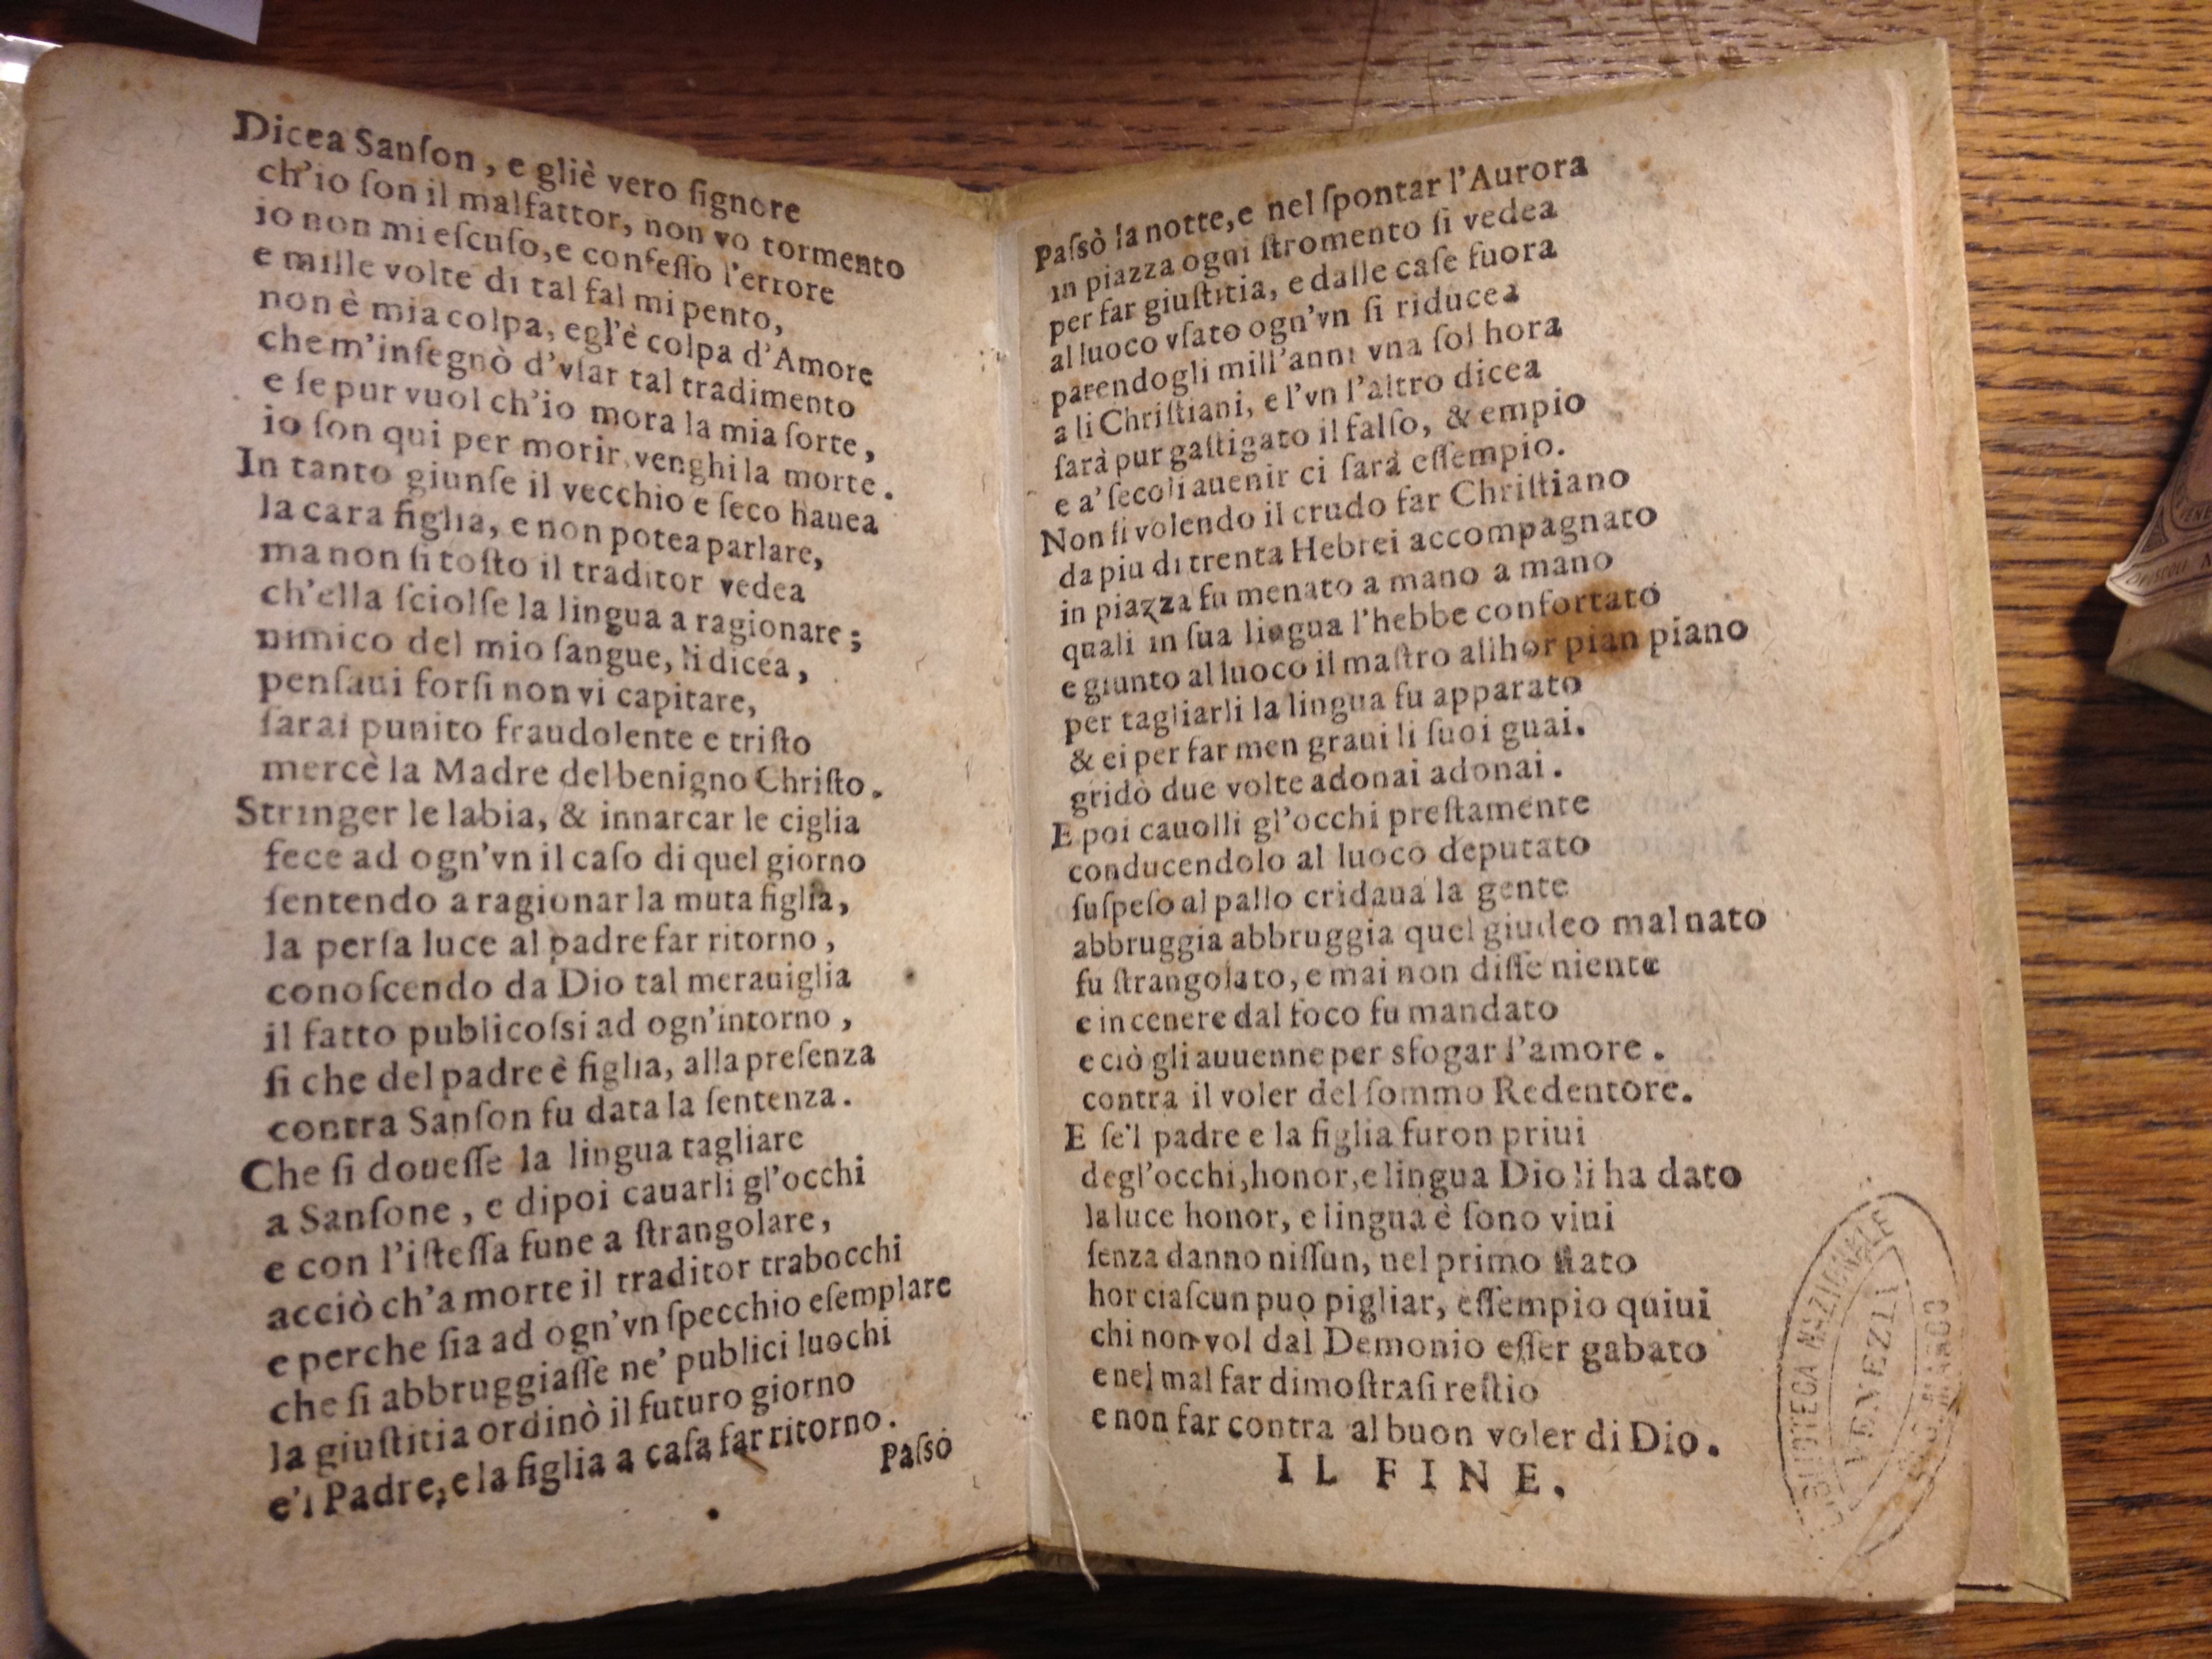 Dicea Sanſon, e gliè vero ſignore
ch'io ſon il malfattor, non vo tormento
io non mi eſcuſo, e confeſſo l'errore
e mille volte di tal fal mi pento,
non è mia colpa, egl'è colpa d'Amore
che m'inſegnò d'vſar tal tradimento
e ſe pur vuol ch'io mora la mia ſorte,
io ſon qui per morir, venghi la morte.
In tanto giunſe il vecchio e ſeco hauea
la cara figlia, e non potea parlare,
ma non ſi toſto il traditor vedea
ch'ella ſciolſe la lingua a ragionare;
nimico del mio ſangue, li dicea,
penſaui forſi non vi capitare,
ſarai punito fraudolente e triſto
mercè la Madre del benigno Chriſto.
Stringer le labia, & innarcar le ciglia
fece ad ogn'vn il caſo di quel giorno
ſentendo a ragionar la muta figlia,
la perſa luce al padre far ritorno,
conoſcendo da Dio tal merauiglia
il fatto publicoſsi ad ogn'intorno,
ſi che del padre è figlia, alla preſenza
contra Sanſon fu data la ſentenza.
Che ſi doueſſe la lingua tagliare
a Sanſone, e dipoi cauarli gl'occhi
e con l'iſteſſa fune a ſtrangolare,
acciò ch'a morte il traditor trabocchi
e perche ſia ad ogn'vn ſpecchio eſemplare
che ſi abbruggiaſſe ne' publici luochi
la giuſtitia ordinò il futuro giorno
e'l Padre, e la figlia a caſa far ritorno.
Paſsò
Paſsò la notte, e nel ſpontar l'Aurora
in piazza ogni ſtromento ſi vedea
per far giuſtitia, e dalle caſe fuora
al luoco vſato ogn'vn ſi riducea
parendogli mill'anni vna ſol hora
a li Chriſtiani, e l'vn l'altro dicea
ſarà pur gaſtigato il falſo, & empio
e a' ſecoli auenir ci ſarà eſſempio.
Non ſi volendo il crudo far Chriſtiano
da piu di trenta Hebrei accompagnato
in piazza fu menato a mano a mano
quali in ſua lingua l'hebbe confortato
e giunto al luoco il maſtro allhor pian piano
per tagliarli la lingua fu apparato
& ei per far men graui li ſuoi guai.
gridò due volte adonai adonai.
E poi cauolli gl'occhi preſtamente
conducendolo al luoco deputato
ſuſpeſo al pallo cridaua la gente
abbruggia abbruggia quel giudeo mal nato
fu ſtrangolato, e mai non diſſe niente
e in cenere dal foco fu mandato
e ciò gli auuenne per sfogar l'amore.
contra il voler del ſommo Redentore.
E ſe'l padre e la figlia furon priui
degl'occhi, honor, e lingua Dio li ha dato
la luce honor, e lingua è ſono viui
ſenza danno niſſun, nel primo ſtato
hor ciaſcun puo pigliar, eſſempio quiui
chi non vol dal Demonio eſſer gabato
e nel mal far dimoſtraſi reſtio
e non far contra al buon voler di Dio.
IL FINE.
BIBLIOTECA NAZIONALE
VENEZIA
DI S. MARCO